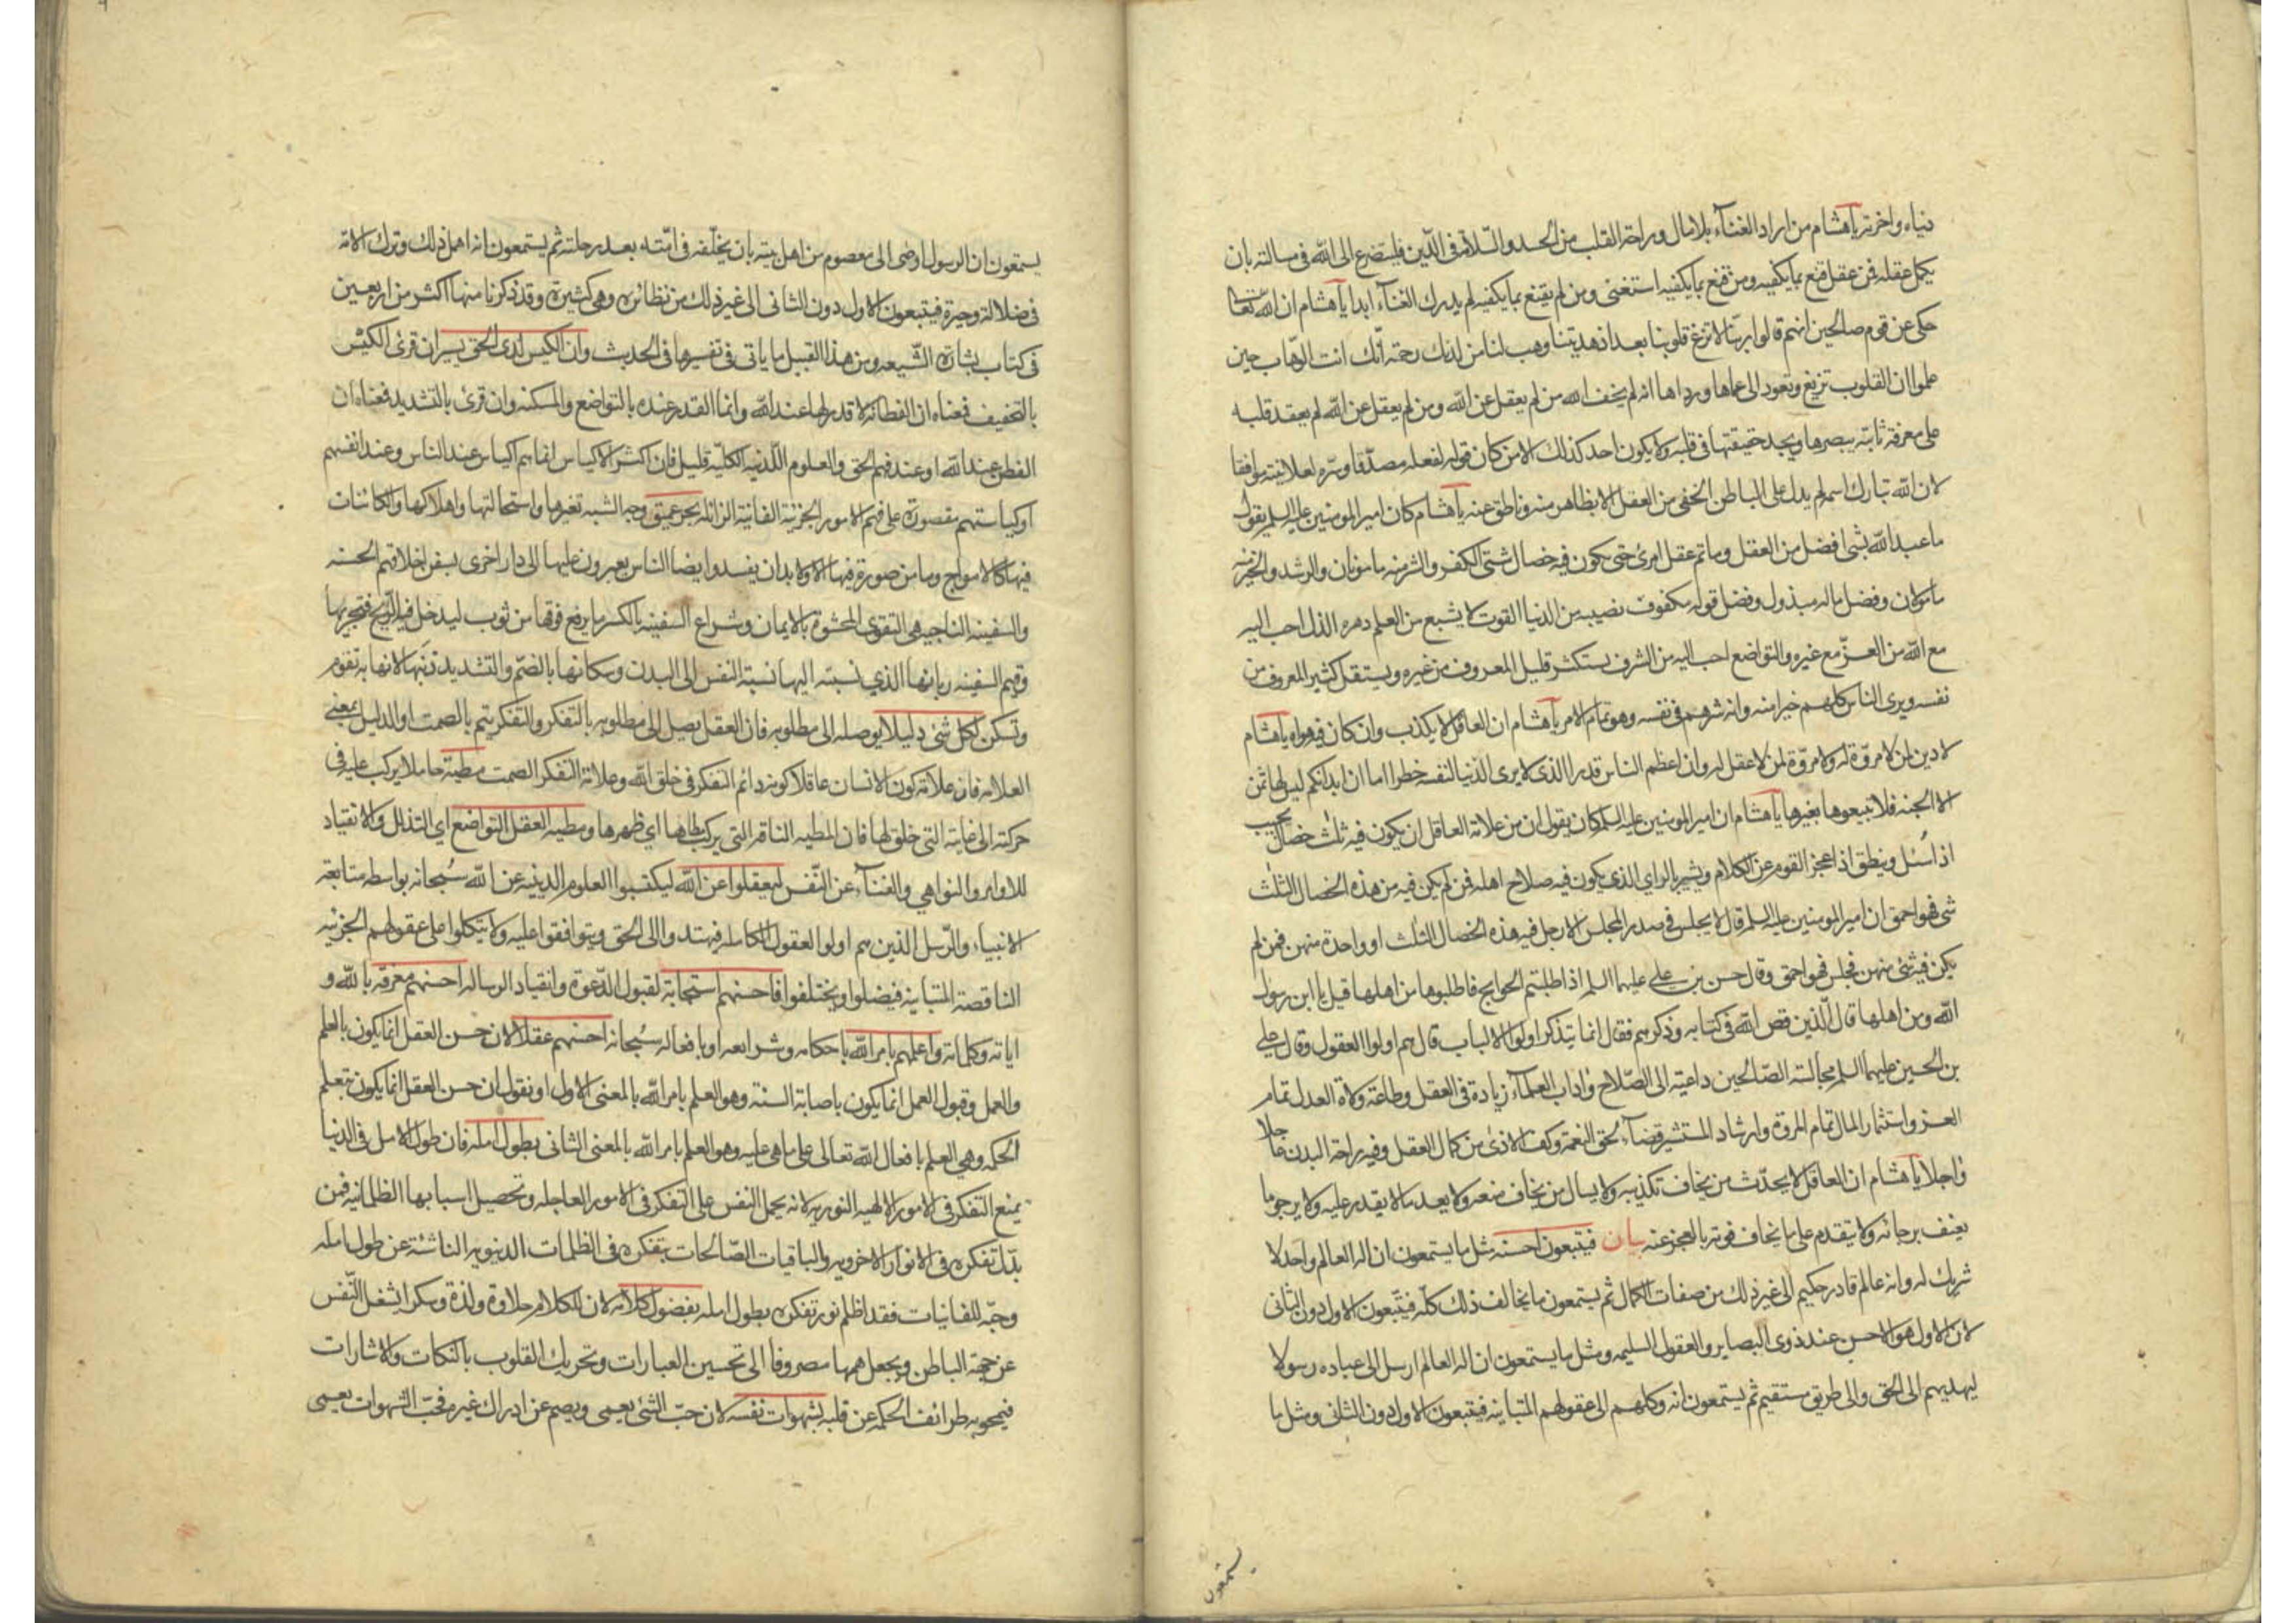 دنياه واخرته يا هشام من اراد الغناء بلا مال وراحة القلب من الحسد والسلامة في الدين فليتضرع الى الله في مسالته بان
يكمل عقله فمن عقل قنع بما يكفيه ومن قنع بما يكفيه استغنى ومن لم يقنع بما يكفيه لم يدرك الغناء ابدا يا هشام ان الله تعالى
حكى عن قوم صالحين انهم قالوا ربنا لا تزغ قلوبنا بعد اذ هديتنا وهب لنا من لدنك رحمة انك انت الوهاب حين
علموا ان القلوب تزيغ وتعود الى عماها ورداها انه لم يخف الله من لم يعقل عن الله ومن لم يعقل عن الله لم يعقد قلبه
على معرفة ثابتة يبصرها ويجد حقيقتها في قلبه ولا يكون احد كذلك الا من كان قوله لفعله مصدقا وسره لعلانيته موافقا
لان الله تبارك اسمه لم يدل على الباطن الخفي من العقل الا بظاهر منه وناطق عنه يا هشام كان امير المومنين عليه السلم يقول
ما عبد الله بشئ افضل من العقل وما تم عقل امرئ حتى يكون فيه خصال شتى الكفر والشر منه مامونان والرشد والخير منه
مامولان وفضل ماله مبذول وفضل قوله مكفوف نصيبه من الدنيا القوت لا يشبع من العلم دهره الذل احب اليه
مع الله من العز مع غيره والتواضع احب اليه من الشرف يستكثر قليل المعروف من غيره ويستقل كثير المعروف من
نفسه ويرى الناس كلهم خيرا منه وانه شرهم في نفسه وهو تمام الامر يا هشام ان العاقل لا يكذب وان كان فيه هواه يا هشام
لا دين لمن لا مروة له ولا مروة لمن لا عقل له وان اعظم الناس قدرا الذى لا يرى الدنيا لنفسه خطرا اما ان ابدانكم ليس لها ثمن
الا الجنة فلا تبيعوها بغيرها يا هشام ان امير المومنين عليه السلم كان يقول ان من علامة العاقل ان يكون فيه ثلث خصال يجيب
اذا سئل وينطق اذا عجز القوم عن الكلام ويشير بالراي الذي يكون فيه صلاح اهله فمن لم يكن فيه من هذه الخصال الثلث
شئ فهو احمق ان امير المومنين عليه السلم قال لا يجلس في صدر المجلس الا رجل فيه هذه الخصال الثلث او واحدة منهن فمن لم
يكن فيه شئ منهن فجلس فهو احمق وقال حسن بن علي عليهما السلم اذا طلبتم الحوايج فاطلبوها من اهلها قيل يا ابن رسول
الله ومن اهلها قال الذين قص الله في كتابه وذكرهم فقال انما يتذكر اولوا الالباب قال هم اولوا العقول وقال علي
بن الحسين عليهما السلم مجالسة الصالحين داعية الى الصلاح واداب العلماء زيادة في العقل وطاعة ولاة العدل تمام
العز واستثمار المال تمام المروة وارشاد المستشير قضاء لحق النعمة وكف الاذى من كمال العقل وفيه راحة البدن عاجلا
واجلا يا هشام ان العاقل لا يحدث من يخاف تكذيبه ولا يسال من يخاف منعه ولا يعد ما لا يقدر عليه ولا يرجو ما
يعنف برجائه ولا يقدم على ما يخاف فوته بالعجز عنه بيان فيتبعون احسنه مثل ما يستمعون ان اله العالم واحد لا
شريك له وانه عالم قادر حكيم الى غير ذلك من صفات الكمال ثم يستمعون ما يخالف ذلك كله فيتبعون الاول دون الثانى
لان الاول هو الاحسن عند ذوى البصاير والعقول السليمه ومثل ما يستمعون ان اله العالم ارسل الى عباده رسولا
ليهديهم الى الحق والى طريق مستقيم ثم يستمعون انه وكلهم الى عقولهم المتباينه فيتبعون الاول دون الثانى ومثل ما
يستمعون
يستمعون ان الرسول اوصى الى معصوم من اهل بيته بان يخلفه في امته بعد رحلته ثم يستمعون انه اهمل ذلك وترك الامة
في ضلالة وحيرة فيتبعون الاول دون الثانى الى غير ذلك من نظائره وهي كثيرة وقد ذكرنا منها اكثر من اربعين
في كتاب بشارة الشيعه ومن هذا القبيل ما ياتى في تفسيرها في الحديث وان الكيس لدى الحق يسير ان قرئ الكيس
بالتخفيف فمعناه ان الفطانة لا قدر لها عند الله وانما القدر عنده بالتواضع والمسكنه وان قرئ بالتشديد فمعناه ان
الفطن عند الله او عند فهم الحق والعلوم اللدنيه الكليه قليل فان اكثر الاكياس انما هم اكياس عند الناس وعند انفسهم
او كياستهم مقصورة على فهم الامور الجزئية الفانية الزائله بحر عميق وجه الشبه تغيرها واستحالتها واهلاكها والكائنات
فيها كالامواج وما من صورة فيها الا ولابد ان يفسد وايضا الناس يعبرون عليها الى دار اخرى بسفن اخلاقهم الحسنه
والسفينه الناجيه هي التقوى المحشوة بالايمان وشراع السفينه بالكسر ما يرفع فوقها من ثوب ليدخل فيه الريح فتجريها
وقيم السفينه ربانها الذي نسبته اليها نسبة النفس الى البدن وسكانها بالضم والتشديد ذنبها لانها به تقوم
وتسكن لكل شئ دليلا يوصله الى مطلوبه فان العقل يصل الى مطلوبه بالتفكر والتفكر يتم بالصمت او الدليل بمعنى
العلامه فان علامة كون الانسان عاقلا كونه دائم التفكر في خلق الله وعلامة التفكر الصمت مطية حاملا يركب عليه في
حركته الى غايته التي خلق لها فان المطيه الناقه التي يركب مطاها اي ظهرها ومطية العقل التواضع اي التذلل والانقياد
للاوامر والنواهي والغناء عن النفس ليعقلوا عن الله ليكتسبوا العلوم الدينيه عن الله سبحانه بواسطه متابعة
الانبياء والرسل الذين هم اولو العقول الكامله فيهتدوا الى الحق ويتوافقوا عليه ولا يتكلوا على عقولهم الجزئيه
الناقصة المتباينه فيضلوا ويختلفوا فاحسنهم استجابة لقبول الدعوة وانقياد الرساله احسنهم معرفة بالله و
اياته وكلماته واعلمهم بامر الله باحكامه وشرايعه او بافعاله سبحانه احسنهم عقلا لان حسن العقل انما يكون بالعلم
والعمل وقبول العمل انما يكون باصابة السنة وهو العلم بامر الله بالمعنى الاول او نقول ان حسن العقل انما يكون بتعلم
الحكمه وهي العلم بافعال الله تعالى على ما هي عليه وهو العلم بامر الله بالمعنى الثانى بطول امله فان طول الامل في الدنيا
يمنع التفكر في الامور الالهيه النوريه لانه يحمل النفس على التفكر في الامور العاجله وتحصيل اسبابها الظلمانيه فمن
بدل تفكره في الانوار الاخرويه والباقيات الصالحات بتفكره في الظلمات الدنيويه الناشئة عن طول امله
وحبه للفانيات فقد اظلم نور تفكره بطول امله بفضول كلامه لان للكلام حلاوة ولذة وسكرا يشغل النفس
عن جهة الباطن ويجعل همها مصروفا الى تحسين العبارات وتحريك القلوب بالنكات والاشارات
فيمحو به طرائف الحكمه عن قلبه بشهوات نفسه لان حب الشئ يعمى ويصم عن ادراك غيره فحب الشهوات يعمى